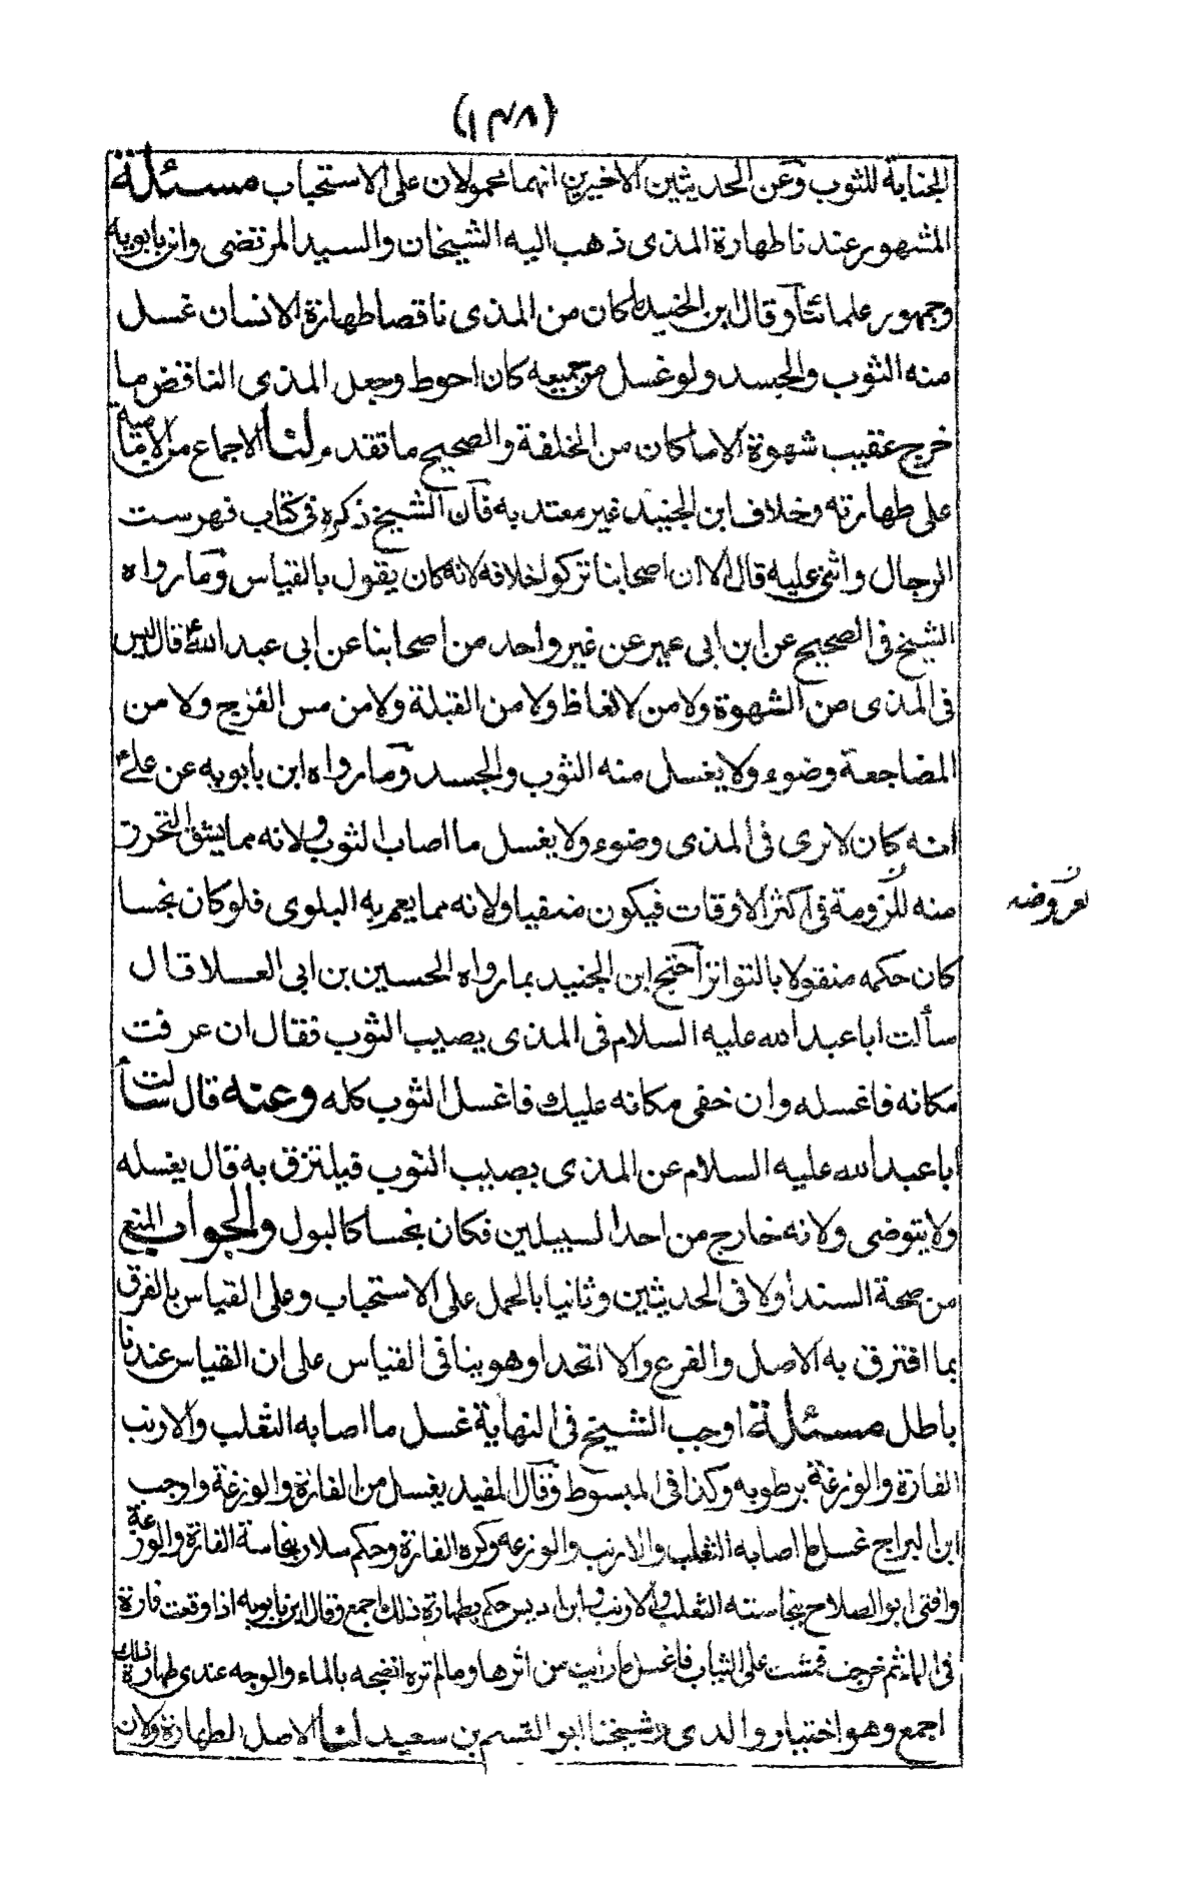 (١٣٨)
الجنابة للثوب وعن الحديثين الاخيرين انهما محمولان على الاستحباب مسئلة
المشهور عندنا طهارة المذى ذهب اليه الشيخان والسيد المرتضى وابن بابويه
وجمهور علمائنا وقال ابن الجنيد ما كان من المذى ناقصا طهارة الانسان غسل
منه الثوب والجسد ولو غسل من جميعه كان احوط وجعل المذى الناقض ما
خرج عقيب شهوة لا ما كان من الخلفة والصحيح ما تقدم لنا الاجماع من الامامية
على طهارته وخلاف ابن الجنيد غير معتد به فان الشيخ ذكره فى كتاب فهرست
الرجال واثنى عليه قال الا ان اصحابنا تركوا خلافه لانه كان يقول بالقياس وما رواه
الشيخ فى الصحيح عن ابن ابى عمير عن غير واحد من اصحابنا عن ابى عبد الله ع قال ليس
فى المذى من الشهوة ولا من الانعاظ ولا من القبلة ولا من مس الفرج ولا من
المضاجعة وضوء ولا يغسل منه الثوب والجسد وما رواه ابن بابويه عن على ع
انه كان لا يرى فى المذى وضوء ولا يغسل ما اصاب الثوب ولانه مما يشق التحرز
منه للزومة فى اكثر الاوقات فيكون منفيا ولانه مما يعم به البلوى فلو كان نجسا
لعروضه
كان حكمه منقولا بالتواتر احتج ابن الجنيد بما رواه الحسين بن ابى العلا قال
سألت ابا عبد الله عليه السلام فى المذى يصيب الثوب فقال ان عرفت
مكانه فاغسله وان خفى مكانه عليك فاغسل الثوب كله وعنه قال سألت
ابا عبد الله عليه السلام عن المذى يصيب الثوب فيلتزق به قال يغسله
ولا يتوضى ولانه خارج من احد السبيلين فكان نجسا كالبول والجواب المنع
من صحة السند اولا فى الحديثين وثانيا بالحمل على الاستحباب وعلى القياس بالفرق
بما افترق به الاصل والفرع والا اتحدا وهو ينافى القياس على ان القياس عندنا
باطل مسئلة اوجب الشيخ فى النهاية غسل ما اصابه الثعلب والارنب
الفارة والوزغة برطوبه وكذا فى المبسوط وقال المفيد يغسل من الفارة والوزغة واوجب
ابن البراج غسل ما اصابه الثعلب والارنب والوزغه وكره الفارة وحكم سلار بنجاسة الفارة والوزغة
وافتى ابو الصلاح بنجاسته الثعلب والارنب وابن ادريس حكم بطهارة ذلك اجمع وقال ابن بابويه اذا وقعت فارة
فى الماء ثم خرجت فمشت على الثياب فاغسل ما رايت من اثرها وما لم تره انضحه بالماء والوجه عندى طهارة ذلك
اجمع وهو اختيار والدى وشيخنا ابو القسم بن سعيد لنا الاصل الطهارة ولان